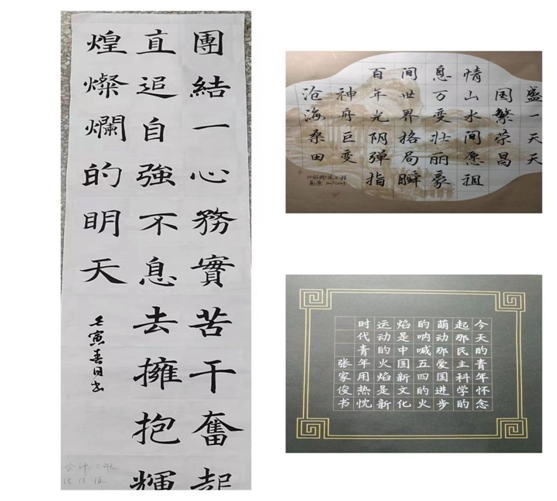 團結一心務實苦干奮起
直追自強不息去擁抱輝
煌燦爛的明天
盛一天天
国繁荣昌
情山水间愿祖
息万变壮丽豪
间世界格局瞬
百年光阴弹指
神州巨变
沧海桑田
今天的青年怀念
起那民主科学的
萌动那爱国进步
的呐喊五四的火
焰是中国新文化
运动的火焰是新
时代青年用热忱
张家俊书